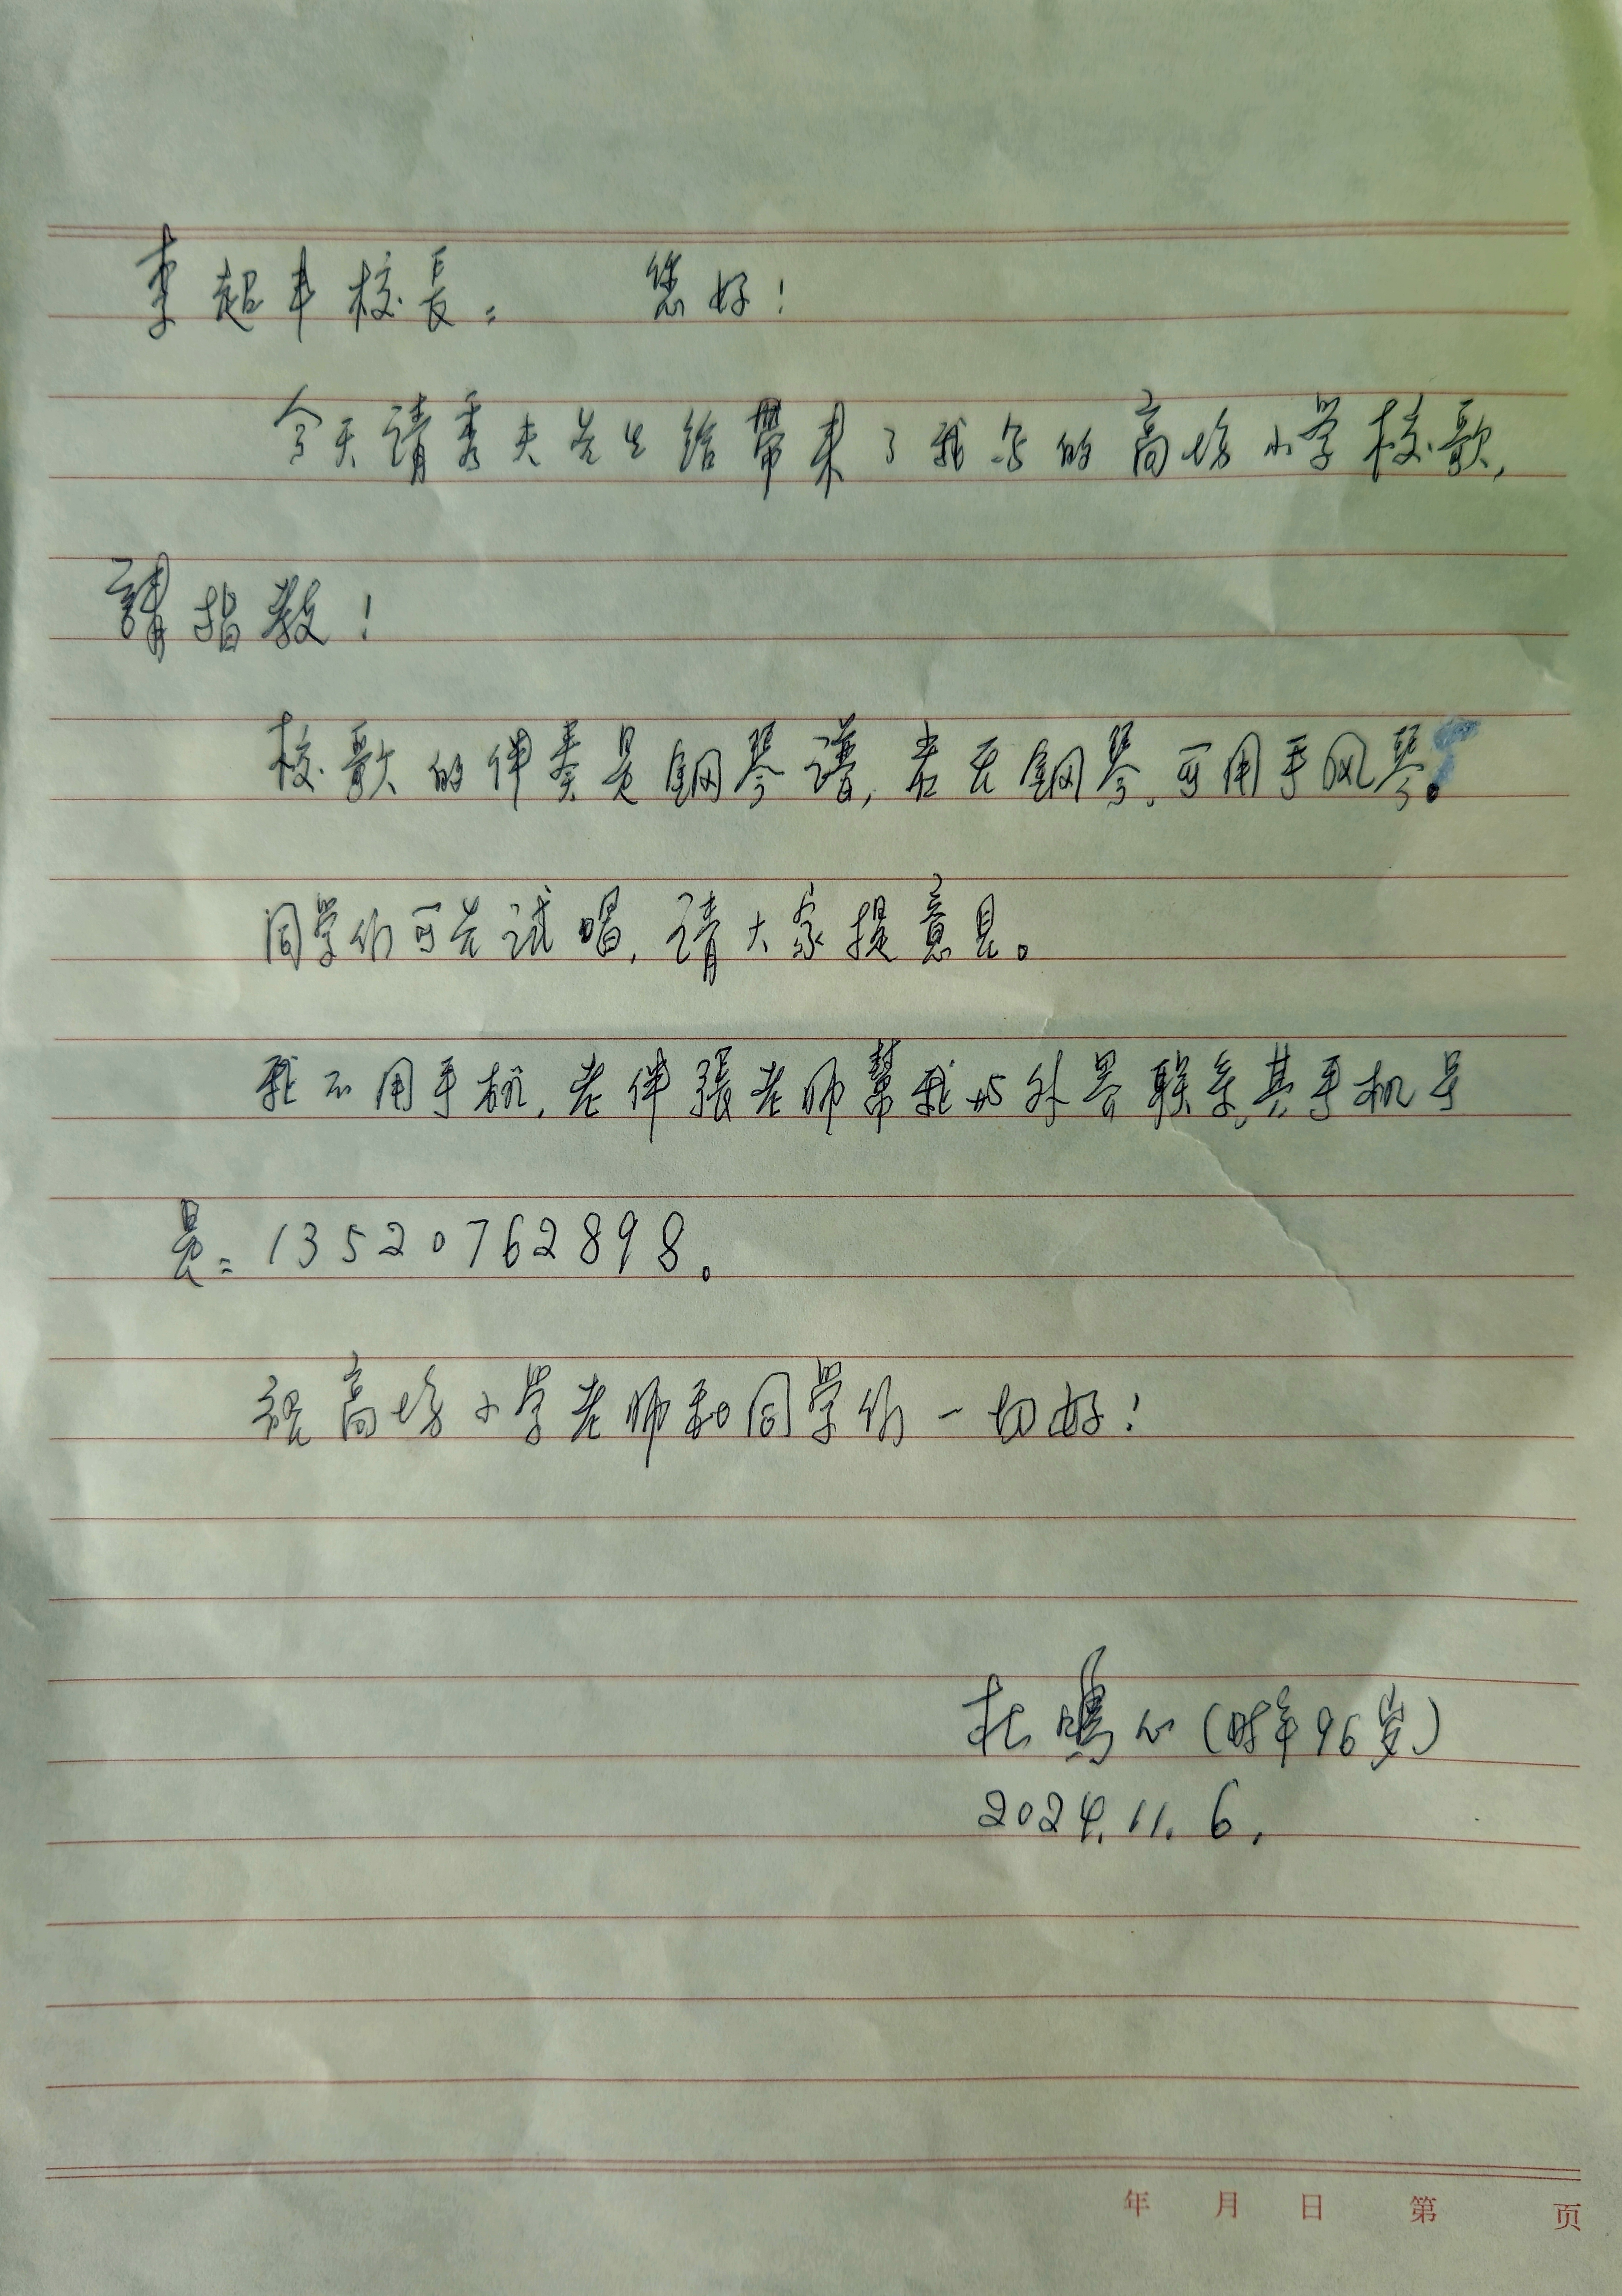 李超丰校長: 您好!
今天请秀夫先生给帶来了我写的高坊小学校歌,
請指教!
校歌的伴奏是鋼琴谱,若无鋼琴,可用手风琴。
同学们可先试唱,请大家提意见。
我不用手机,老伴張老师幫我与外界联系,其手机号
是:13520762898。
祝高坊小学老师和同学们一切好!
杜鳴心(时年96岁)
2024.11.6.
年 月 日 第 页